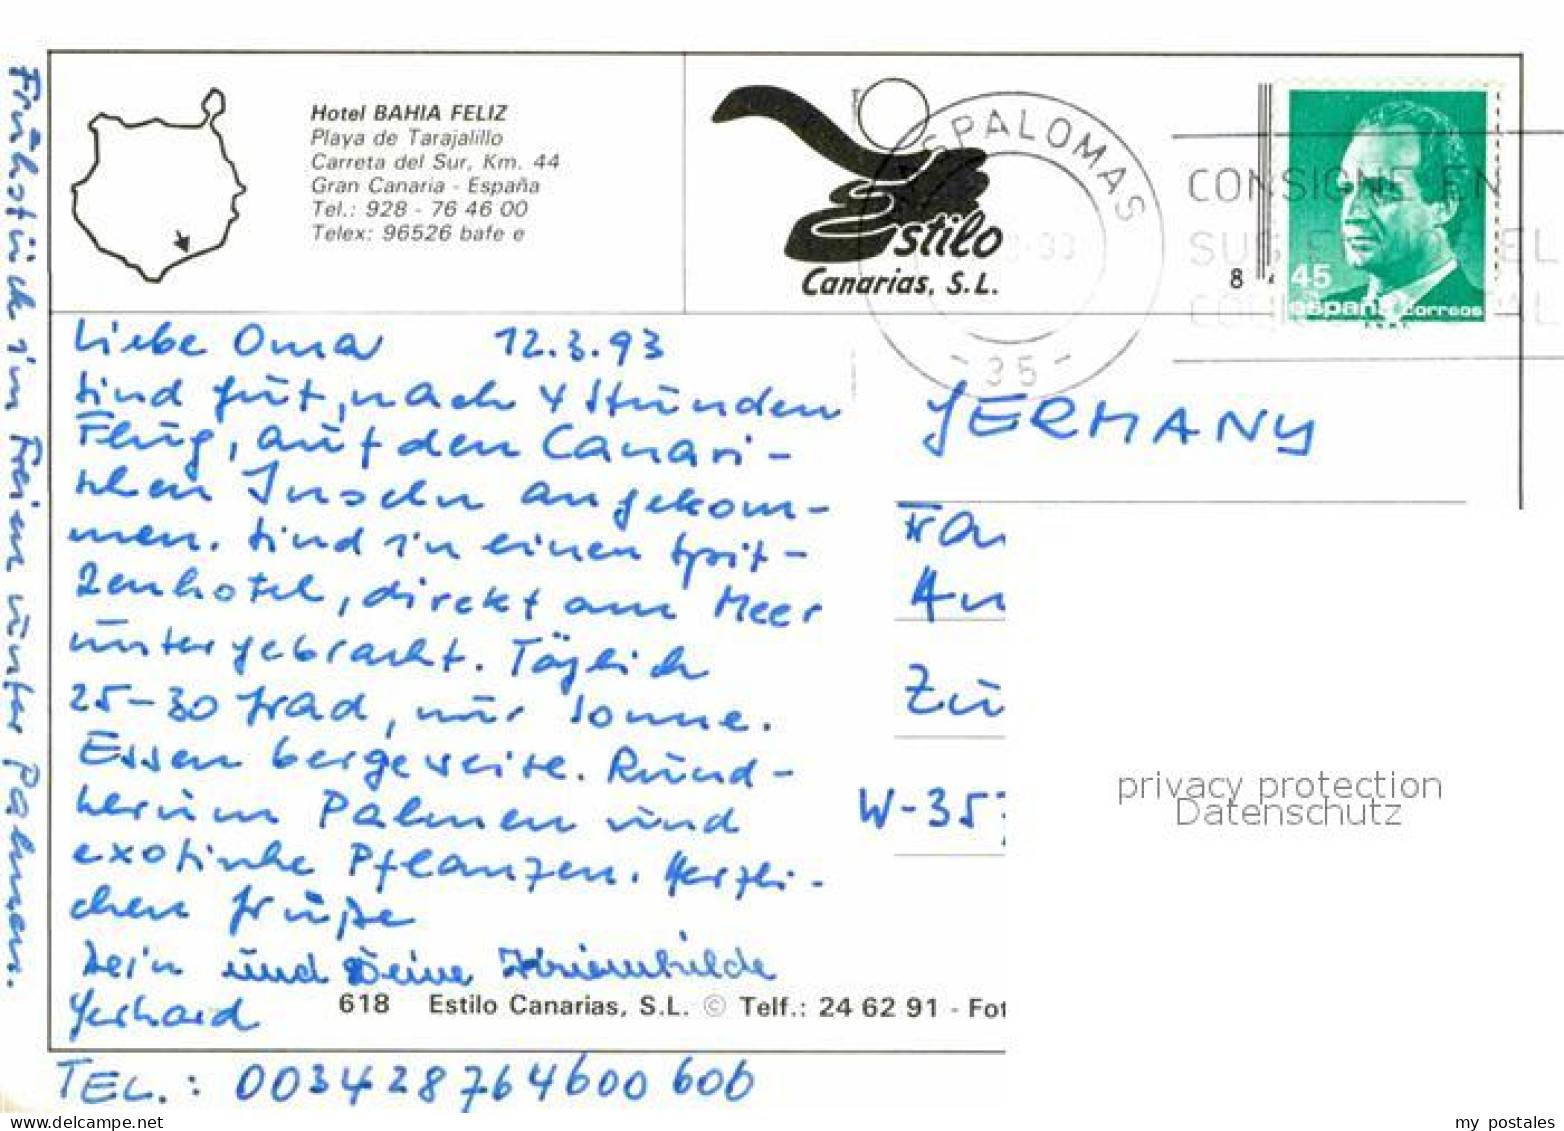 Hotel BAHIA FELIZ
Playa de Tarajalillo
Carreta del Sur, Km. 44
Gran Canaria - España
Tel.: 928 - 76 46 00
Telex: 96526 bafe e
Estilo
Canarias, S.L.
SPALOMAS
- 35 -
CONSIGNE EN
8
45
españa correos
Liebe Oma 12.3.93
Sind gut, nach 4 Stünden
Flug, auf den Canari-
schen Inseln angekom-
men. Sind in einen Spit-
zenhotel, direkt am Meer
untergebracht. Täglich
25-30 Grad, nur Sonne.
Essen bergeweise. Rund-
herum Palmen und
exotische Pflanzen. Herzli-
chen Grüße
Dein und Deine Kriemhilde
Gerhard
TEL.: 0034 28 764600 606
Frühstück im Freien unter Palmen.
GERMANY
Zü
W-35
618 Estilo Canarias, S.L. © Telf.: 24 62 91 - Fot
privacy protection
Datenschutz
delcampe.net
my_postales